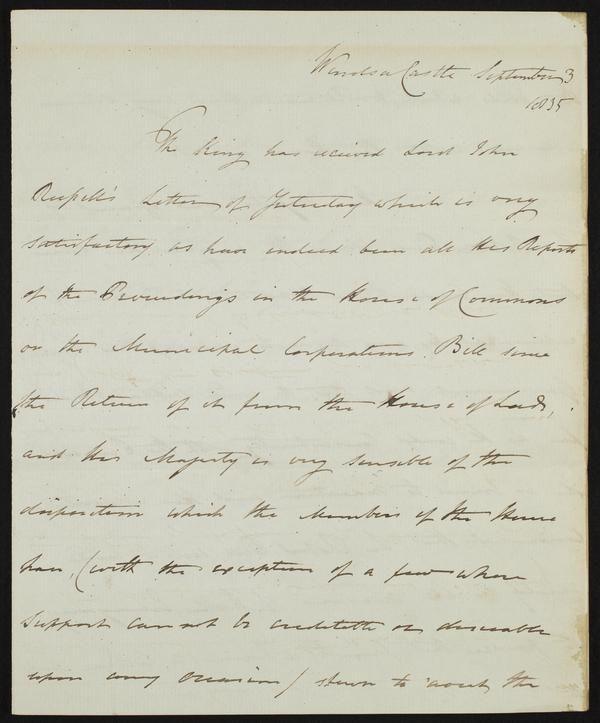 Windsor Castle September 3
1835
The King has received Lord John
Russell's Letter of Yesterday which is very
satisfactory as have indeed been all His Reports
of the Proceedings in the House of Commons
on the Municipal Corporations Bill since
the Return of it from the House of Lords,
and His Majesty is very sensible of the
disposition which the Members of the House
have, (with the exception of a few whose
support cannot be creditable or desirable
upon any occasion) shewn to avert the